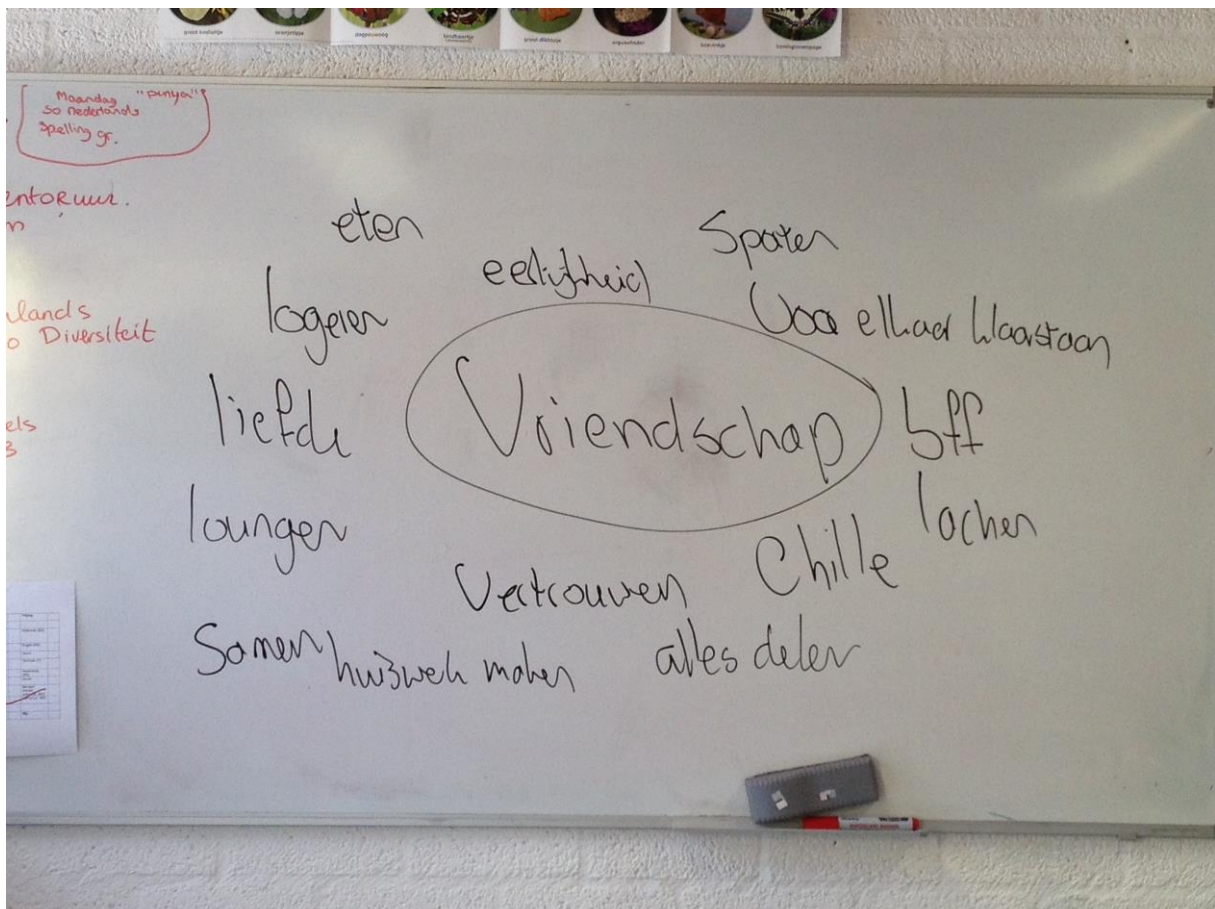 Maandag "penya"
so nederlands
Spelling gr.
entoruur.
n
lands
o Diversiteit
els
3
eten
Spoten
eerlijkheid
logeren
Voor elkaar klaarstaan
liefde
Vriendschap
bff
loungen
lachen
Chille
Vertrouwen
Samen huiswerk maken
alles delen